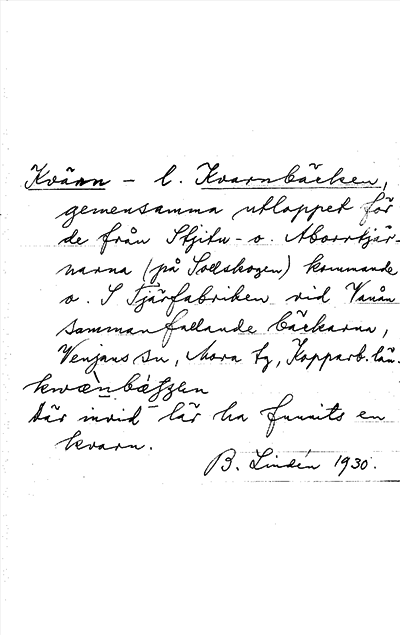 Kvärn – l. Kvarnbäcken,
gemensamma utloppet för
de från Stjitu- o. Aborrtjär-
narna (på Sollskogen) kommande
o. S Tjärfabriken vid Vanån
sammanfallande bäckarna,
Venjans sn, Mora tg, Kopparb. län.
kwæ̀nbäʃʃen
Där invid lär ha funnits en
kvarn.
B. Lindén 1930.